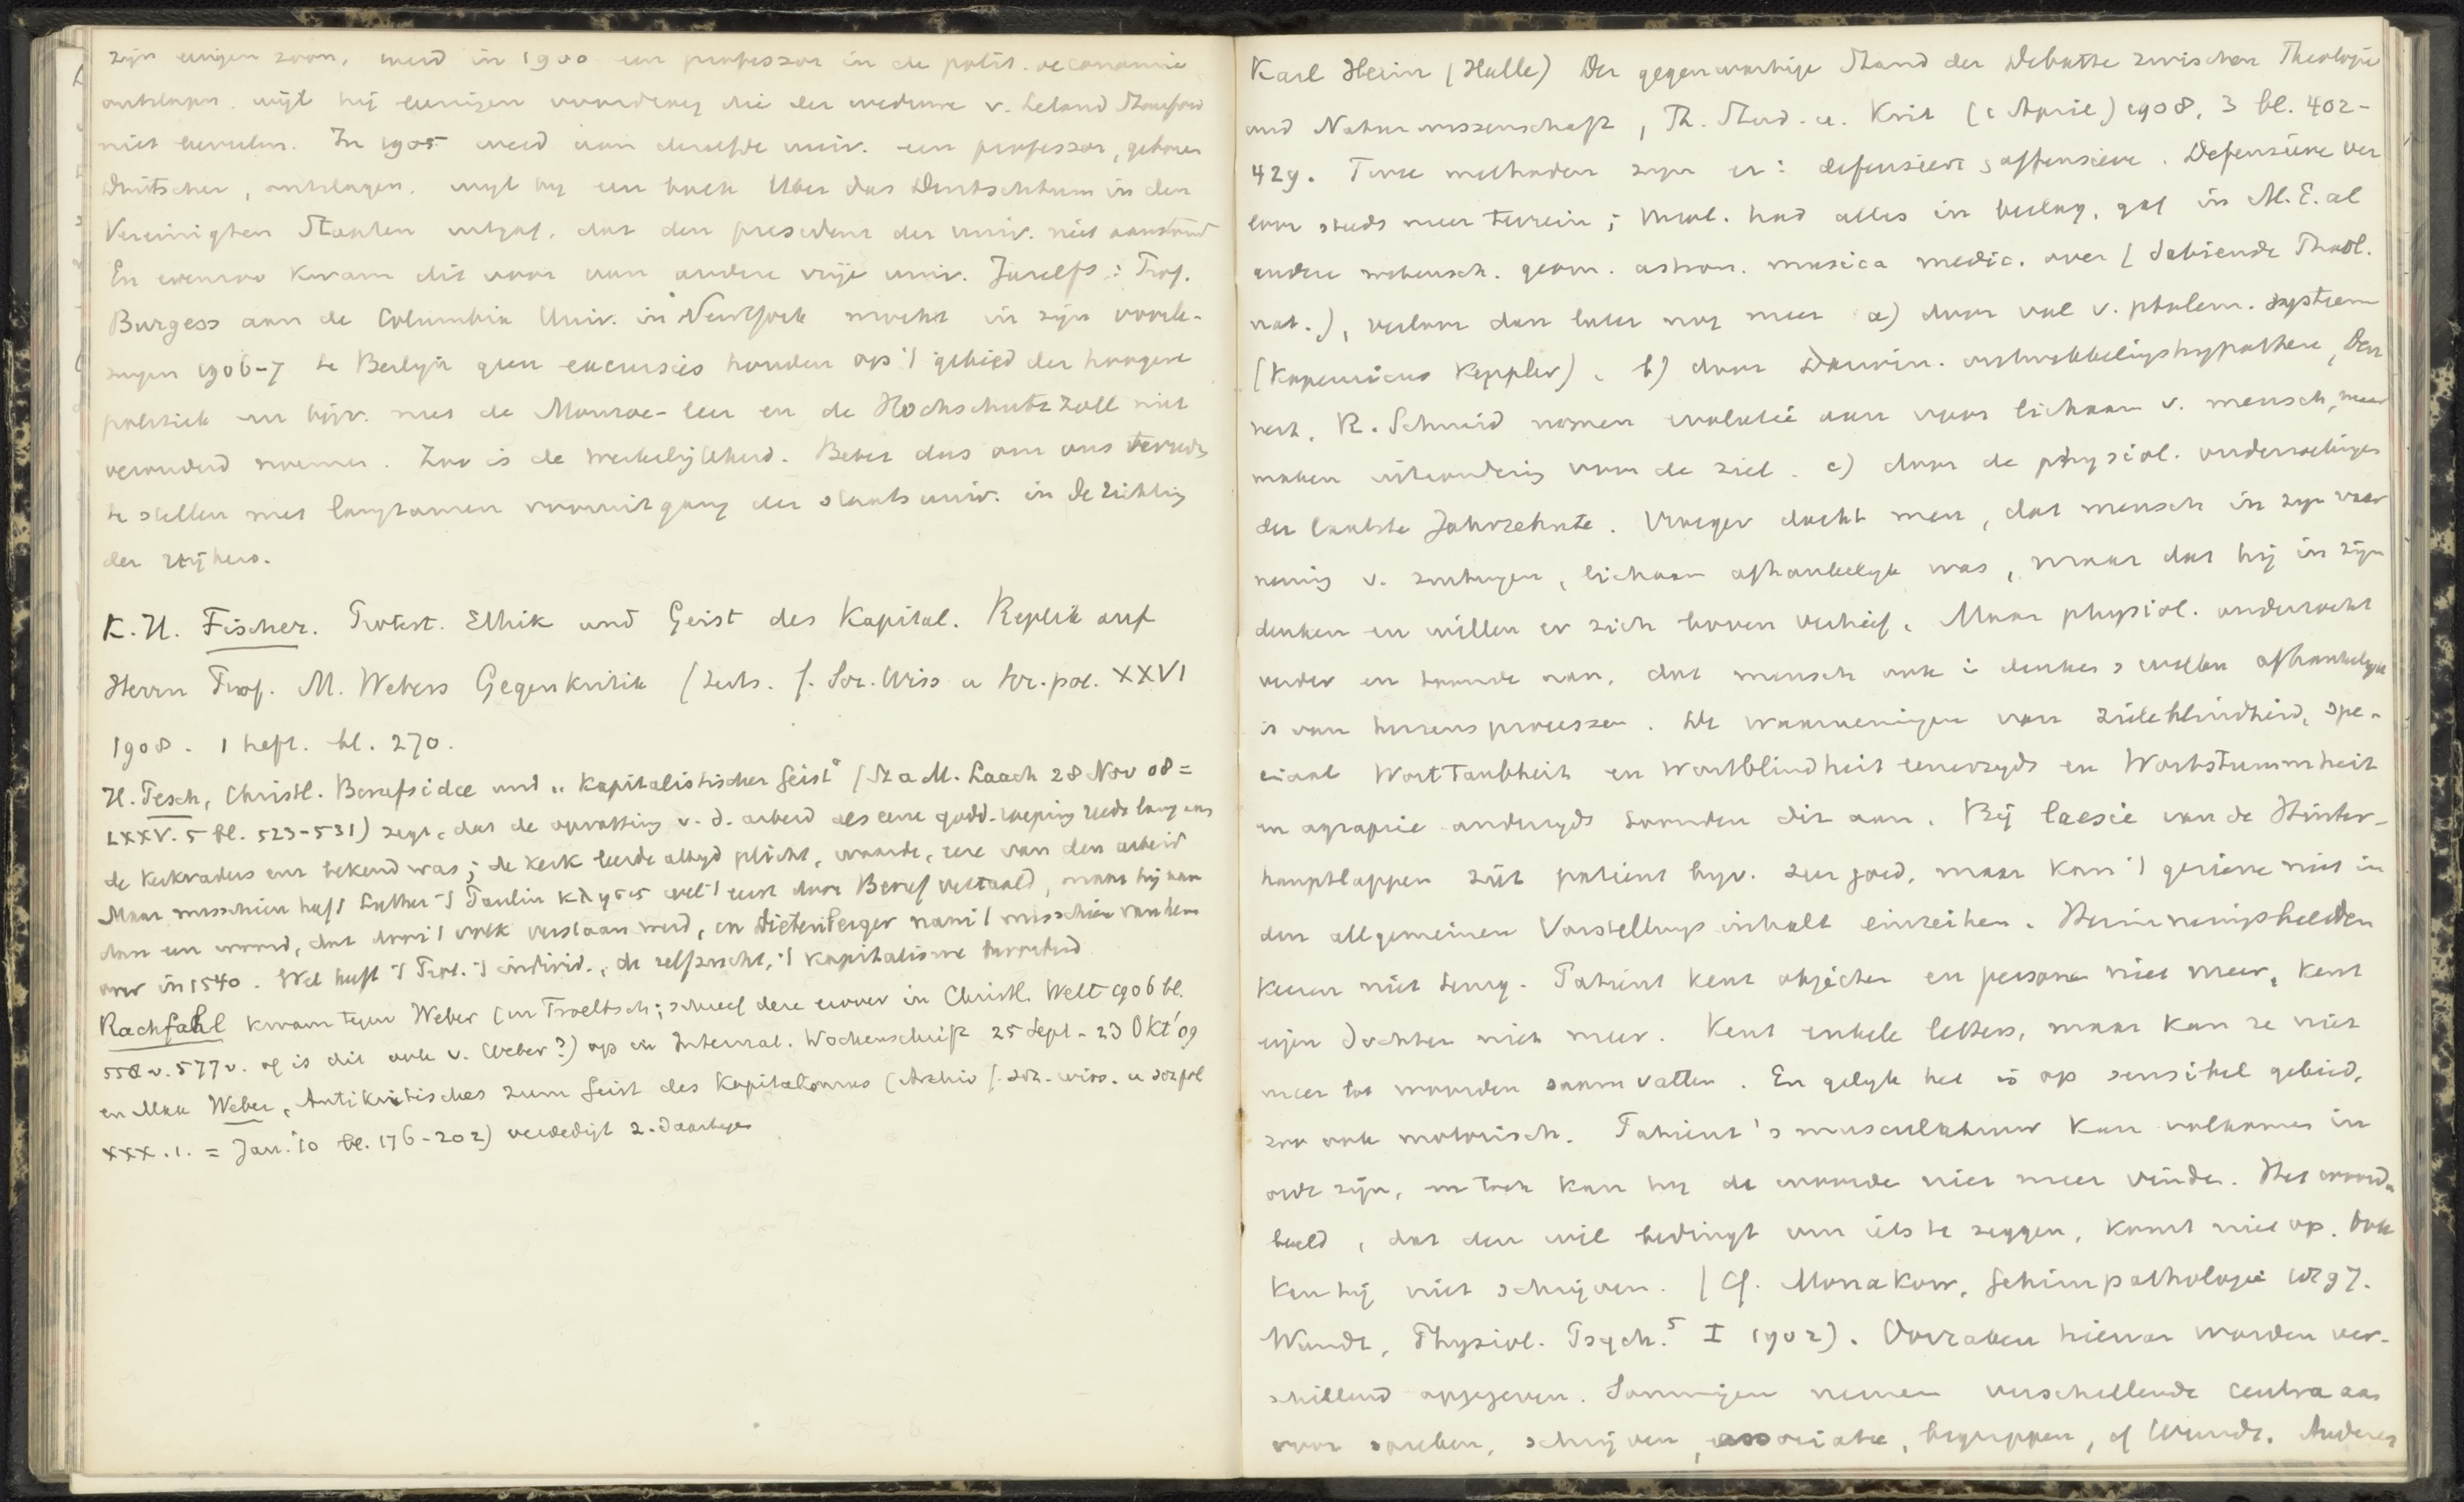 zijn eenigen zoon, werd in 1900 een professor in de polit. oeconomie
ontslagen, wijl hij eenigen voordeng die der weduwe v. Leland Stanford
niet bevielen. In 1905 werd aan dezelfde univ. een professor, geboren
Duitscher, ontslagen, wijl hij een boek Über das Deutschtum in den
Vereinigten Staaten uitgaf, dat den president der univ. niet aanstond
En evenzoo kwam dit voor aan andere vrije univ. Zarelfs: Prof.
Burgess aan de Columbia Univ. in NewYork mocht in zijn voorle-
zingen 1906-7 te Berlijn geen excursies houden op 't gebied der hoogere
politiek en bijv. niet de Monroe-leer en de Hochschutzzoll niet
verouderd noemen. Zoo is de werkelijkheid. Beter dus om ons tevreden
te stellen met langzamen vooruitgang der staatsuniv. in de richting
der vrijheid.
K. H. Fischer. Protest. Ethik und Geist des Kapital. Replik auf
Herrn Prof. M. Webers Gegenkritik (Archs. f. Soz. Wiss u Soz. pol. XXVI
1908. 1 heft. bl. 270.
H. Pesch, Christl. Berufsidee und „Kapitalistischer Geist" (St a M. Laach 28 Nov 08 =
LXXV. 5 bl. 523-531) zegt, dat de opvatting v. d. arbeid als eene godd. roeping reeds lang aan
de kerkvaders enz bekend was; de kerk leerde altijd plicht, waarde, eere van den arbeid
Maar misschien heeft Luther 't Paulin κλησις wel 't eerst door Beruf vertaald, maar hij nam
dan een woord, dat door 't volk verstaan werd, en Dietenberger nam 't misschien van hem
over in 1540. Wel heeft 't Prot. 't individ., de zelfzucht, 't kapitalisme bevorderd
Rachfahl kwam tegen Weber (en Troeltsch; schreef deze erover in Christl. Welt 1906 bl.
558 v. 577 v. of is dit ook v. Weber?) op in Internat. Wochenschrift 25 Sept - 23 Okt '09
en Max Weber, Antikritisches zum Geist des Kapitalismus (Archiv f. Soz. wiss. u soz pol
XXX. 1. = Jan. '10 bl. 176-202) verdedigt z. daartegen
Karl Heim (Halle) Der gegenwärtige Stand der Debatte zwischen Theologie
und Naturwissenschaft, Th. Stud. u. Krit (1 April) 1908, 3 bl. 402-
429. Twee methoden zijn er: defensieve & offensieve. Defensieve ver
loor steeds meer terrein; theol. had alles in beslag, gaf in M. E. al
andere wetensch. geom. astron. musica medic. over (Sabiende Theol.
nat.), verloor dan later nog meer a) door val v. ptolem. systeem
(Kopernicus Keppler). b) door Darwin. ontwikkelingshypothese, Den
nert, R. Schmid nemen evolutie aan voor lichaam v. mensch, maar
maken uitzondering voor de ziel. c) door de physiol. onderzoekingen
der laatste Jahrzehnte. Vroeger dacht men, dat mensch in zijn waar
neming v. zintuigen, lichaam afhankelijk was, maar dat hij in zijn
denken en willen er zich boven verhief. Maar physiol. onderzocht
verder en toonde aan, dat mensch ook i denken & willen afhankelijk
is van hersensprocessen. De waarnemingen van zieleblindheid, spe-
ciaal Worttaubheit en Wortblindheit eenerzijds en Wortstummheit
en agraphie anderzijds toonden dit aan. Bij laesie van de Hinter-
hauptlappen ziet patient bijv. zeer goed, maar kan 't geziene niet in
den allgemeinen Vorstellungsinhalt einreihen. Herinneringsbeelden
keeren niet terug. Patient kent objecten en personen niet meer, kent
eigen dochter niet meer. Kent enkele letters, maar kan ze niet
meer tot woorden saamvatten. En gelijk het is op sensibel gebied,
zoo ook motorisch. Patient's musculatuur kan volkomen in
orde zijn, en toch kan hij de woorden niet meer vinden. Het woord-
beeld, dat den wil bedingt om iets te zeggen, komt niet op. Ook
kan hij niet schrijven. (Cf. Monakow, Gehirnpathologie 1897.
Wundt, Physiol. Psych.⁵ I 1902). Oorzaken hiervan worden ver-
schillend opgegeven. Sommigen nemen verschillende centra aan
voor spreken, schrijven, associatie, begrippen, cf Wundt. Anderen